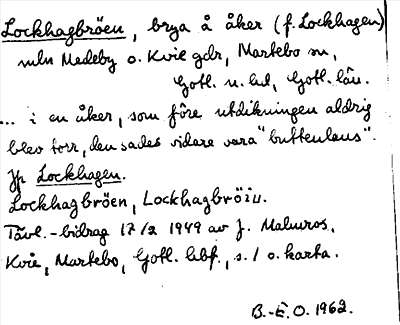 Lockhagbröen, brya å åker (f. Lockhagen)
mln Medeby o. Kvie gdr, Martebo sn,
Gotl. n. hd, Gotl. län.
... i en åker, som före utdikningen aldrig
blev torr, den sades vidare vara "buttenlaus".
Jfr Lockhagen.
Lockhagbröen, Lockhagbröiu.
Tävl.-bidrag 17/2 1949 av J. Malmros,
Kvie, Martebo, Gotl. s. 1 o. karta.
B.-E.O. 1962.